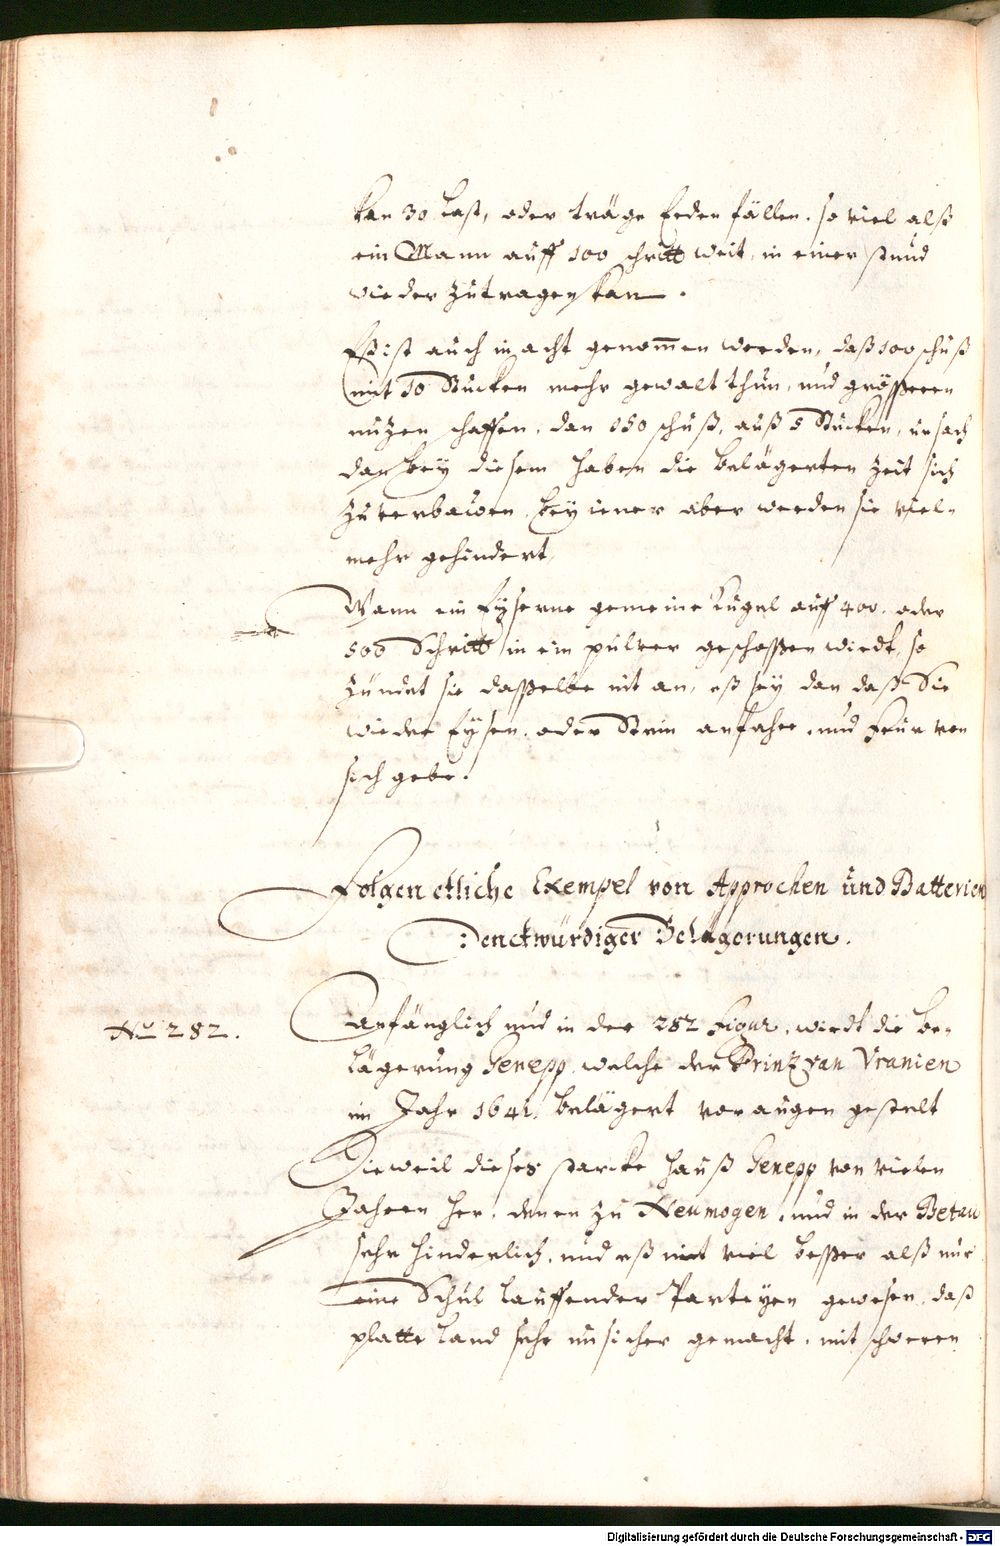 kan 30 Last, oder träge Erden fällen, so viel alß
ein Mann auff 100 schritt weit, in einer stund
wieder zutragen kan.
Eß ist auch in acht genom̅en worden, daß 100 schuß
mit 10 Stucken mehr gewalt thun, und grösseren
nutzen schaffen, dan 150 schuß, auß 5 Stucken, ursach
dan bey diesem haben die belägerten zeit sich
zu verbawen, bey iener aber werden sie viel-
mehr gehindert.
Wann ein Eyserne gemeine Kugel auff 400. oder
500 Schritt in ein pulver geschossen wirdt, so
zündet sie dasselbe nit an, eß sey dan daß Sie
wieder Eysen, oder Stein anfahre, und feur von
sich gebe.
Folgen etliche Exempel von Approchen und Batterien
Denckwürdiger Belägerungen.
No 282.
Anfänglich und in der 282 Figur, wirdt die be-
lägerung Genepp, welche der Prinz van Vranien
im Jahr 1641. belägert vor augen gestelt
Dieweil dieses starcke Hauß Genepp von vielen
Jahren her, denen zu Neumogen, und in der Betau
sehr hinderlich, und eß nit viel besser alß nur
eine Schul lauffender Parteyen gewesen, daß
platte Land sehr unsicher gemacht, mit schweren
Digitalisierung gefördert durch die Deutsche Forschungsgemeinschaft - DFG